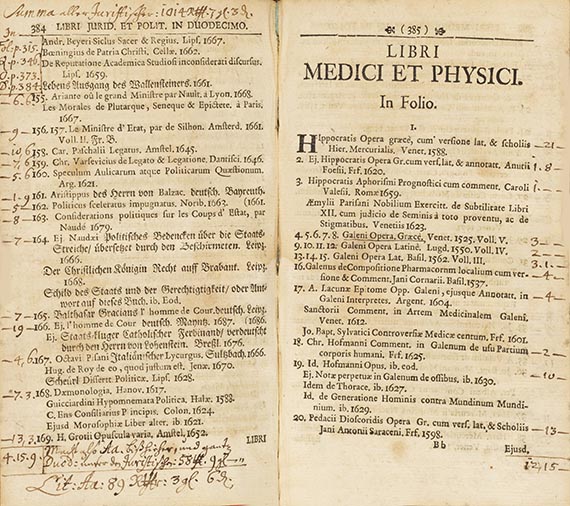 Summa aller Juristischer: 1014
384 LIBRI JURID. ET POLIT. IN DUODECIMO.
Andr. Beyeri Siclus Sacer & Regius. Lipf. 1667.
Bœningius de Patria Chrifti, Cellæ, 1667.
De Reputatione Academica Studiofi inconfiderati difcurfus.
Lipf. 1659.
Lebens Ausgang des Wallensteiners. 1661.
155. Arianto où le grand Miniftre par Nault. à Lyon. 1668.
Les Morales de Plutarque, Seneque & Epictete. à Paris,
1667.
156. 157. Le Miniftre d'Etat, par de Silhon. Amfterd. 1661.
Voll. II. Fr. B.
158. Car. Pafchalii Legatus, Amftel. 1645.
159. Chr. Varfevicius de Legato & Legatione, Dantifci. 1646.
160. Speculum Aulicarum atque Politicarum Quæftionum.
Arg. 1621.
161. Ariftippus des Herrn von Balzac. deutsch. Bayreuth.
162. Politicus sceleratus impugnatus, Norib. 1663. (1661.
163. Confiderations politiques fur les Coups d'Eftat, par
Naudé 1679.
164. Ej. Naudæi Politisches Bedencken über die Staats-
Streiche/ übersetzet durch den Beschirmeten. Leipz.
1666.
Der Christlichen Königin Recht auff Brabant. Leipz.
1668.
Schild des Staats und der Gerechtigkeit/ oder Ant-
wort auf dieses Buch, ib. Eod.
165. Balthasar Gracians l' homme de Cour, deutsch. Leipz.
166. Ej. l'homme de Cour deutsch. Mayntz. 1687. (1686.
Ej. Staats-kluger Catholischer Ferdinand/ verdeutscht
durch den Herrn von Lohenstein. Breßl. 1676.
167. Octavi Pisani Italiänischer Lycurgus. Sultzbach. 1666.
Hug. de Roy de eo, quod juftum eft. Jenæ. 1670.
Scheurl Differt. Politicæ. Lipf. 1628.
168. Dæmonologia, Hanov. 1617.
Guicciardini Hypomnemata Politica, Halæ. 1588.
C, Ens Confiliarius Principis. Colon. 1624.
Ejusd Morofophiæ Liber alter. ib. 1621.
169. H. Grotii Opufcula varia, Amftel. 1652.
LIBRI
(385)
LIBRI
MEDICI ET PHYSICI.
In Folio.
1.
Hippocratis Opera græcè, cum verfione lat. & fcholiis
Hier. Mercurialis. Venet. 1588.
2. Ej. Hippocratis Opera Gr. cum verf. lat, & annotatt. Anutii
Foefii. Frf. 1620.
3. Hippocratis Aphorifmi Prognoftici cum comment. Caroli
Valefii. Romæ 1659.
Æmylii Parifani Nobilium Exercit. de Subtilitate Libri
XII, cum judicio de Seminis à toto proventu, ac de
Stigmatibus. Venetiis 1623.
4. 5. 6. 7. 8. Galeni Opera, Græcè, Venet. 1525. Voll. V.
9. 10. 11. 12. Galeni Opera Latinè. Lugd. 1550. Voll. IV.
13. 14. 15. Galeni Opera Lat. Bafil. 1562. Voll. III.
16. Galenus de Compofitione Pharmacorum localium cum ver-
fione & Comment. Jani Cornarii. Bafil. 1537.
17. A. Lacunæ Epitome Opp. Galeni, ejusque Annotatt. in
Galeni Interpretes. Argent. 1604.
Sanctorii Comment. in Artem Medicinalem Galeni.
Venet. 1612.
Jo. Bapt. Sylvatici Controverfiæ Medicæ centum. Frf. 1601.
18. Chr. Hofmanni Comment. in Galenum de ufu Partium
corporis humani. Frf. 1625.
19. Id. Hofmanni Opus. ib. cod.
Ej. Notæ perpetuæ in Galenum de offibus. ib. 1630.
Idem de Thorace. ib. 1627.
Id. de Generatione Hominis contra Mundinum Mundi-
nium. ib. 1629.
20. Pedacii Diofcoridis Opera Gr. cum verf. lat, & Scholiis
Jani Antonii Saraceni. Frf. 1598.
B b Ejusd.